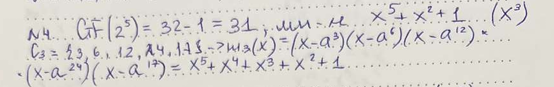 №4. GF(2⁵) = 32 - 1 = 31, мн-н x⁵ + x² + 1 (x³)
C₃ = {3, 6, 12, 24, 17} -> m₃(x) = (x - a³)(x - a⁶)(x - a¹²) ·
· (x - a²⁴)(x - a¹⁷) = x⁵ + x⁴ + x³ + x² + 1